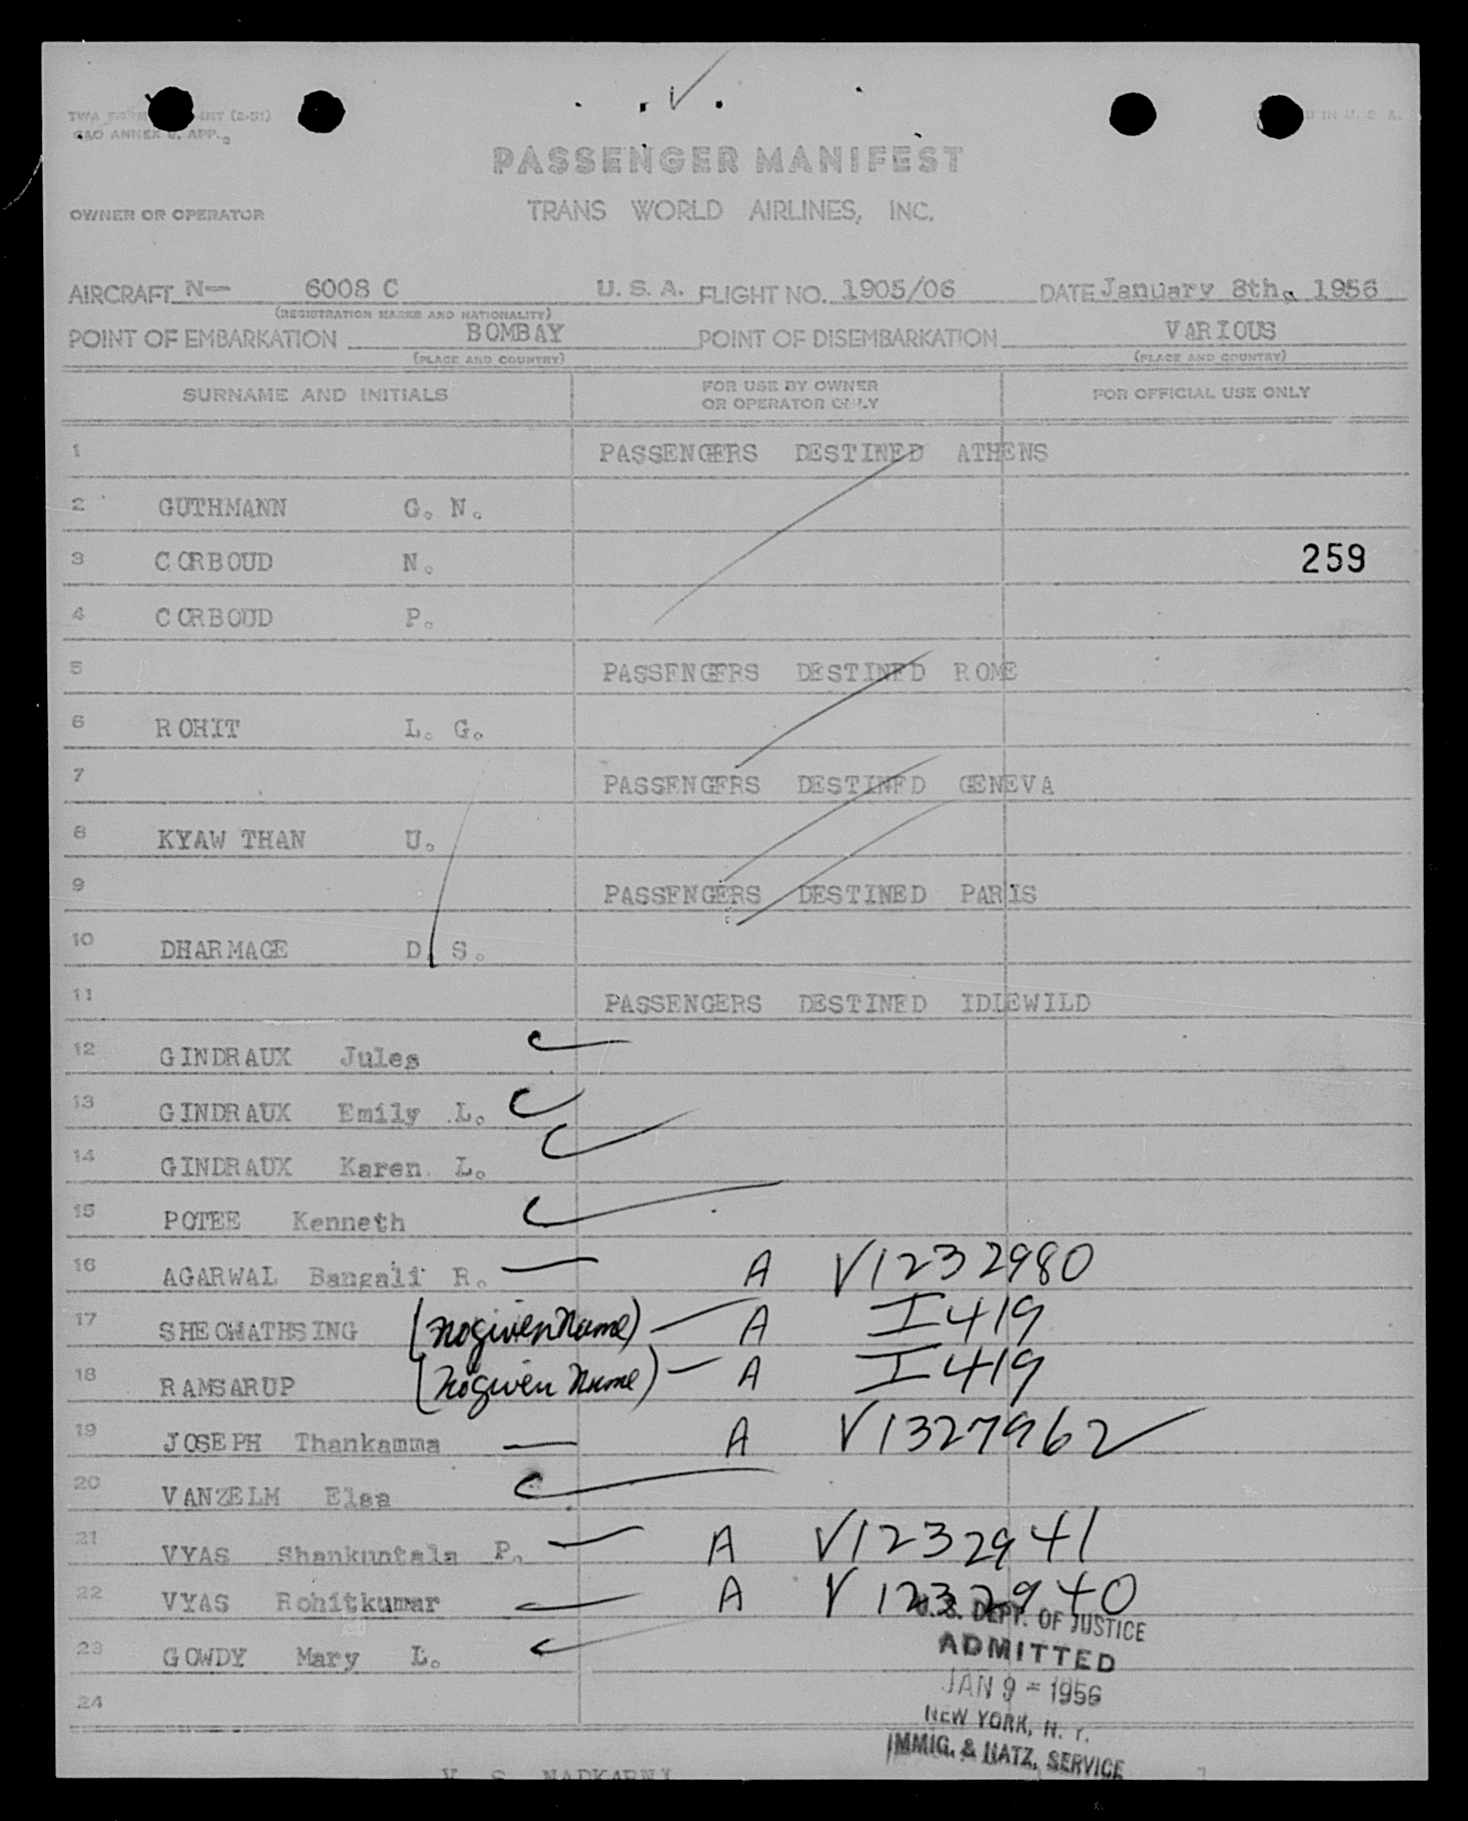 TWA FORM INT (2-51)
CAO ANNEX 9, APP.
IN U. S. A.
PASSENGER MANIFEST
OWNER OR OPERATOR TRANS WORLD AIRLINES, INC.
AIRCRAFT N- 6008 C U. S. A. FLIGHT NO. 1905/06 DATE January 8th, 1956
(REGISTRATION MARKS AND NATIONALITY)
POINT OF EMBARKATION BOMBAY POINT OF DISEMBARKATION VARIOUS
(PLACE AND COUNTRY) (PLACE AND COUNTRY)
SURNAME AND INITIALS FOR USE BY OWNER OR OPERATOR ONLY FOR OFFICIAL USE ONLY
1 PASSENGERS DESTINED ATHENS
2 GUTHMANN G. N.
3 CORBOUD N. 259
4 CORBOUD P.
5 PASSENGERS DESTINED ROME
6 ROHIT L. G.
7 PASSENGERS DESTINED GENEVA
8 KYAW THAN U.
9 PASSENGERS DESTINED PARIS
10 DHARMAGE D. S.
11 PASSENGERS DESTINED IDLEWILD
12 GINDRAUX Jules
13 GINDRAUX Emily L.
14 GINDRAUX Karen L.
15 POTEE Kenneth
16 AGARWAL Bangali R. — A V1232980
17 SHEOWATHSING (no given Name) — A I419
18 RAMSARUP (no given Name) — A I419
19 JOSEPH Thankamma — A V1327962
20 VANZELM Elsa
21 VYAS Shankuntala P. — A V1232941
22 VYAS Rohitkumar — A V1232940
23 GOWDY Mary L.
24
U.S. DEPT. OF JUSTICE
ADMITTED
JAN 9 - 1956
NEW YORK, N. Y.
IMMIG. & NATZ. SERVICE
V. S. NADKARNI